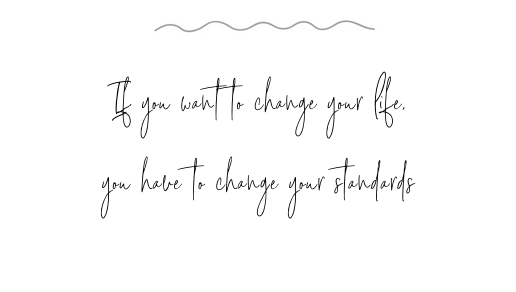 If you want to change your life,
you have to change your standards